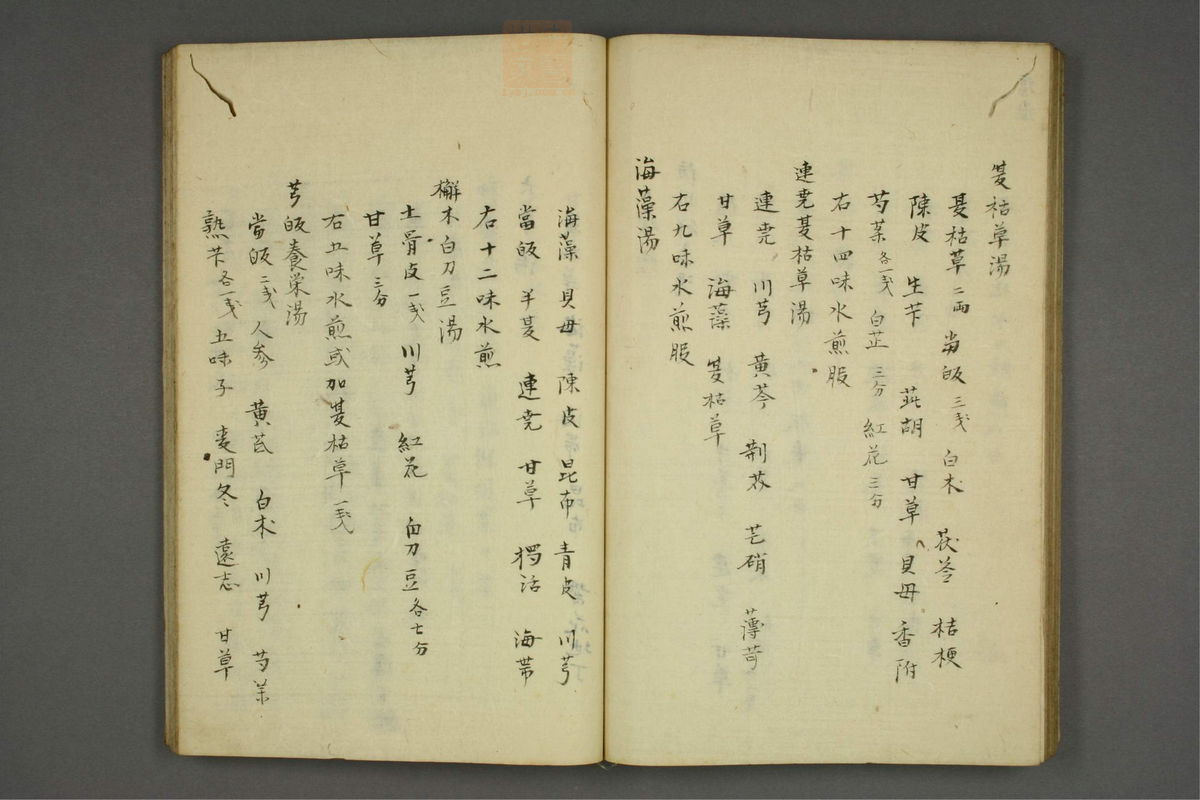 夏枯草湯
夏枯草二両 當皈三戔 白朮 茯苓 桔梗
陳皮 生芐 茈胡 甘草 貝母 香附
芍薬各一戔 白芷三分 紅花三分
右十四味水煎服
連尭夏枯草湯
連尭 川芎 黄芩 荆芥 芒硝 薄苛
甘草 海藻 夏枯草
右九味水煎服
海藻湯
海藻 貝母 陳皮 昆布 青皮 川芎
當皈 半夏 連尭 甘草 獨活 海帯
右十二味水煎
檞木白刀豆湯
土骨皮一戔 川芎 紅花 白刀豆各七分
甘草三分
右五味水煎或加夏枯草一戔
芎皈養栄湯
當皈二戔 人参 黄芪 白朮 川芎 芍薬
熟芐各一戔 五味子 麦門冬 遠志 甘草